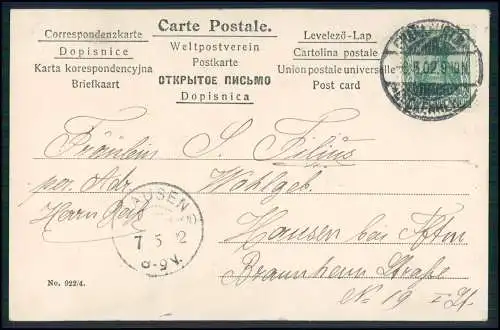 Carte Postale.
Correspondenzkarte
Dopisnice
Karta korespondencyjna
Briefkaart
Weltpostverein
Postkarte
ОТКРЫТОЕ ПИСЬМО
Dopisnica
Levelező-Lap
Cartolina postale
Union postale universelle
Post card
5.02.9
Fräulein S. Filius
per Adr. Wohlgeb.
Herrn
Hausen bei Ffm
HAUSEN
7 5 2
8-9V.
Straße
No 19
No. 922/4.